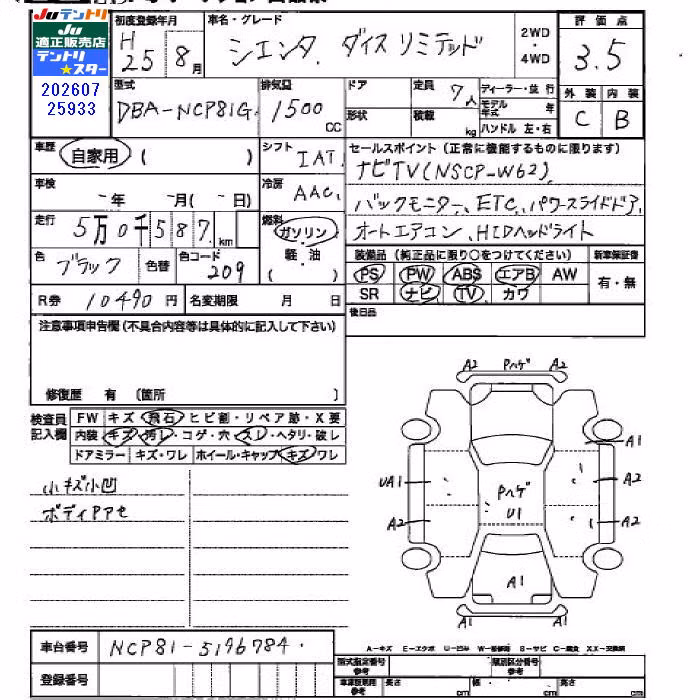 Juテントリ
Ju
適正販売店
テントリ
★スター
202607
25933
初度登録年月
H
25 8月
車名・グレード
シエンタ ダイス リミテッド
2WD
・
4WD
評価点
3.5
型式
DBA-NCP81G
排気量
1500
CC
ドア
形状
定員 7人
積載 kg
ディーラー・並行
モデル年式 年
ハンドル 左・右
外装 内装
C B
車歴
自家用 ( )
シフト
IAT
セールスポイント(正常に機能するものに限ります)
ナビTV(NSCP-W62)
バックモニター、ETC、パワースライドドア、
オートエアコン、HIDヘッドライト
車検
-年 -月(-日)
冷房
AAC
走行
5万0千587km
燃料
ガソリン
・
軽・油
( )
色
ブラック
色替
色コード
209
装備品(純正品に限り○をつけてください)
PS PW ABS エアB AW
SR ナビ TV カワ
新車保証書
有・無
R券 10490円
名変期限 月 日
後日品
注意事項申告欄(不具合内容等は具体的に記入して下さい)
修復歴 有 [箇所 ]
検査員
記入欄
FW キズ・飛石・ヒビ割・リペア跡・X要
内装 キズ・汚レ・コゲ・穴・スレ・ヘタリ・破レ
ドアミラー キズ・ワレ ホイール・キャップ キズ・ワレ
小キズ小凹
ボディPアセ
A2 Pハゲ A2
A1
UA1
A2
A2
A2
Pハゲ
U1
A1
A1 A1
車台番号 NCP81-5196784
登録番号
A-キズ E-エクボ U-凹み W-補修跡 S-サビ C-腐食 XX-交換済
型式指定番号
参考
類別区分番号
参考
車庫証明用
参考
長さ cm
幅 cm
高さ cm